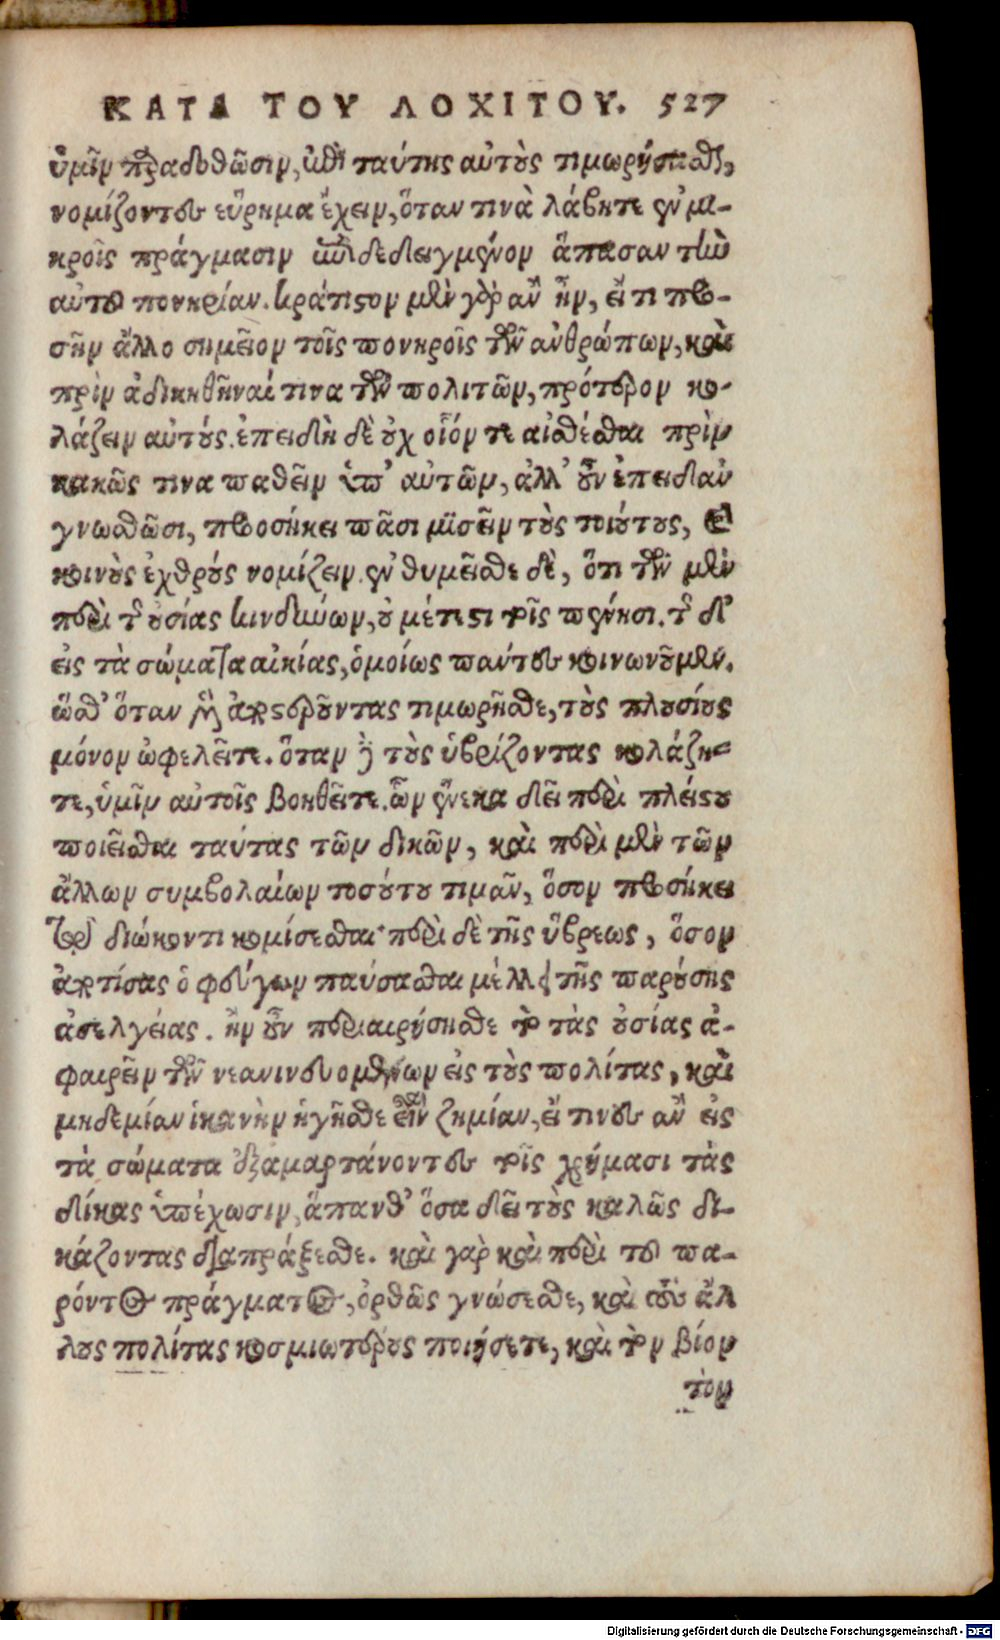 ΚΑΤΑ ΤΟΥ ΛΟΧΙΤΟΥ. 527
ὑμῖν παραδοθῶσιν, ἐπὶ ταύτης αὐτοὺς τιμωρήσεσθε,
νομίζοντες εὕρημα ἔχειν, ὅταν τινὰ λάβητε ἐν μι-
κροῖς πράγμασιν ἐπιδεδειγμένον ἅπασαν τὴν
αὐτοῦ πονηρίαν. κράτιστον μὲν γὰρ ἂν ἦν, εἴ τι προ-
σῆν ἄλλο σημεῖον τοῖς πονηροῖς τῶν ἀνθρώπων, καὶ
πρὶν ἀδικηθῆναί τινα τῶν πολιτῶν, πρότερον κο-
λάζειν αὐτούς. ἐπειδὴ δὲ οὐχ οἷόν τε αἰσθέσθαι πρὶν
κακῶς τινα παθεῖν ὑπ' αὐτῶν, ἀλλ' οὖν ἐπειδὰν
γνωσθῶσι, προσήκει πᾶσι μισεῖν τοὺς τοιούτους, καὶ
κοινοὺς ἐχθροὺς νομίζειν. ἐνθυμεῖσθε δὲ, ὅτι τῶν μὲν
περὶ τὰς οὐσίας κινδύνων, οὐ μέτεστι τοῖς πένησι. τῆς δ'
εἰς τὰ σώματα αἰκίας, ὁμοίως πάντες κοινωνοῦμεν.
ὥσθ' ὅταν μὲν ἀποστεροῦντας τιμωρῆσθε, τοὺς πλουσίους
μόνον ὠφελεῖτε. ὅταν δὲ τοὺς ὑβρίζοντας κολάζη-
τε, ὑμῖν αὐτοῖς βοηθεῖτε. ὧν ἕνεκα δεῖ περὶ πλείστου
ποιεῖσθαι ταύτας τῶν δικῶν, καὶ περὶ μὲν τῶν
ἄλλων συμβολαίων τοσούτου τιμᾶν, ὅσον προσήκει
τῷ διώκοντι κομίσεσθαι· περὶ δὲ τῆς ὕβρεως, ὅσον
ἀποτίσας ὁ φεύγων παύσασθαι μέλλει τῆς παρούσης
ἀσελγείας. ἢν οὖν περιαιρήσησθε τὸ τὰς οὐσίας ἀ-
φαιρεῖν τῶν νεανιευομένων εἰς τοὺς πολίτας, καὶ
μηδεμίαν ἱκανὴν ἡγῆσθε εἶναι ζημίαν, εἴ τινες ἂν εἰς
τὰ σώματα ἐξαμαρτάνοντες τοῖς χρήμασι τὰς
δίκας ὑπέχωσιν, ἅπανθ' ὅσα δεῖ τοὺς καλῶς δι-
κάζοντας διαπράξεσθε. καὶ γὰρ καὶ περὶ τοῦ πα-
ρόντος πράγματος, ὀρθῶς γνώσεσθε, καὶ τοὺς ἄλ
λους πολίτας κοσμιωτέρους ποιήσετε, καὶ τὸν βίον
τὸν
Digitalisierung gefördert durch die Deutsche Forschungsgemeinschaft - DFG